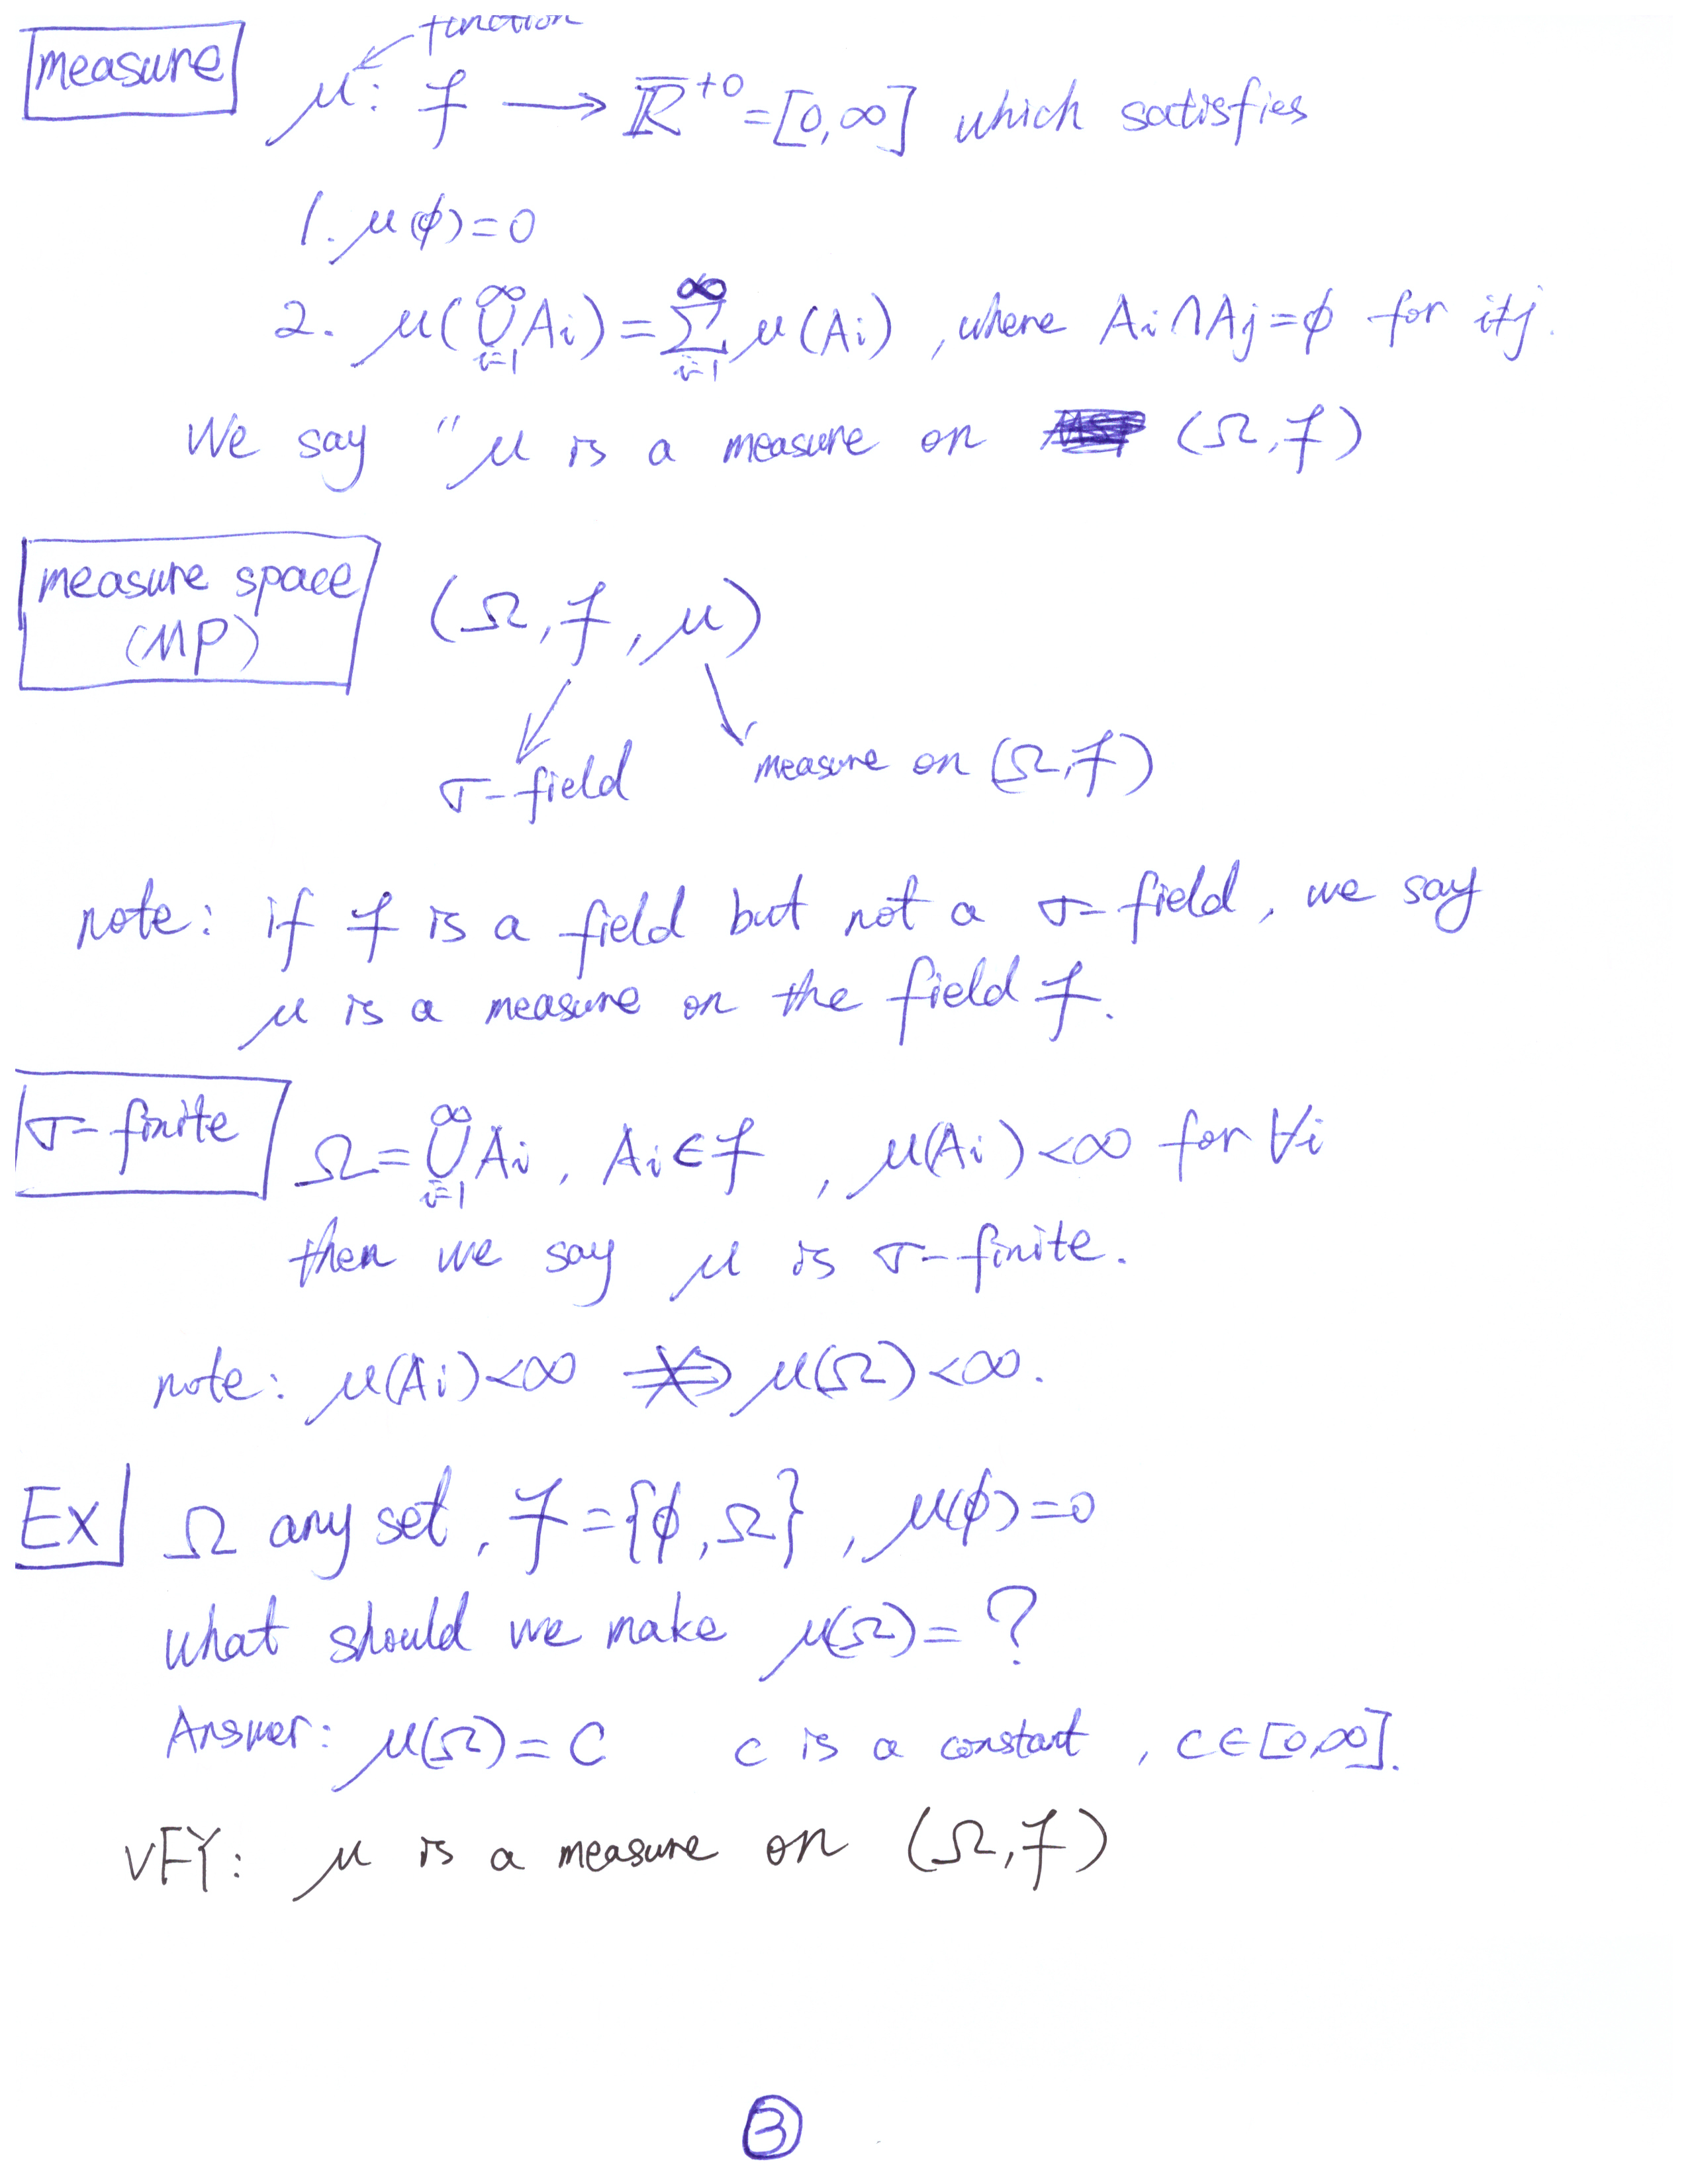 function
measure
μ: 𝓕 → ℝ̅⁺⁰ = [0,∞] which satisfies
1. μ(ϕ)=0
2. μ(⋃_{i=1}^∞ Ai) = ∑_{i=1}^∞ μ(Ai) , where Ai ∩ Aj = ϕ for i≠j.
We say "μ is a measure on (Ω,𝓕)
measure space
(MP)
(Ω, 𝓕, μ)
σ-field
measure on (Ω,𝓕)
note: if 𝓕 is a field but not a σ-field, we say
μ is a measure on the field 𝓕.
σ-finite
Ω = ⋃_{i=1}^∞ Ai , Ai ∈ 𝓕 , μ(Ai) <∞ for ∀i
then we say μ is σ-finite.
note: μ(Ai)<∞ ⇏ μ(Ω) <∞.
Ex
Ω any set, 𝓕 = {ϕ, Ω} , μ(ϕ)=0
what should we make μ(Ω)= ?
Answer: μ(Ω)= C c is a constant , c∈[0,∞].
VFY: μ is a measure on (Ω,𝓕)
3